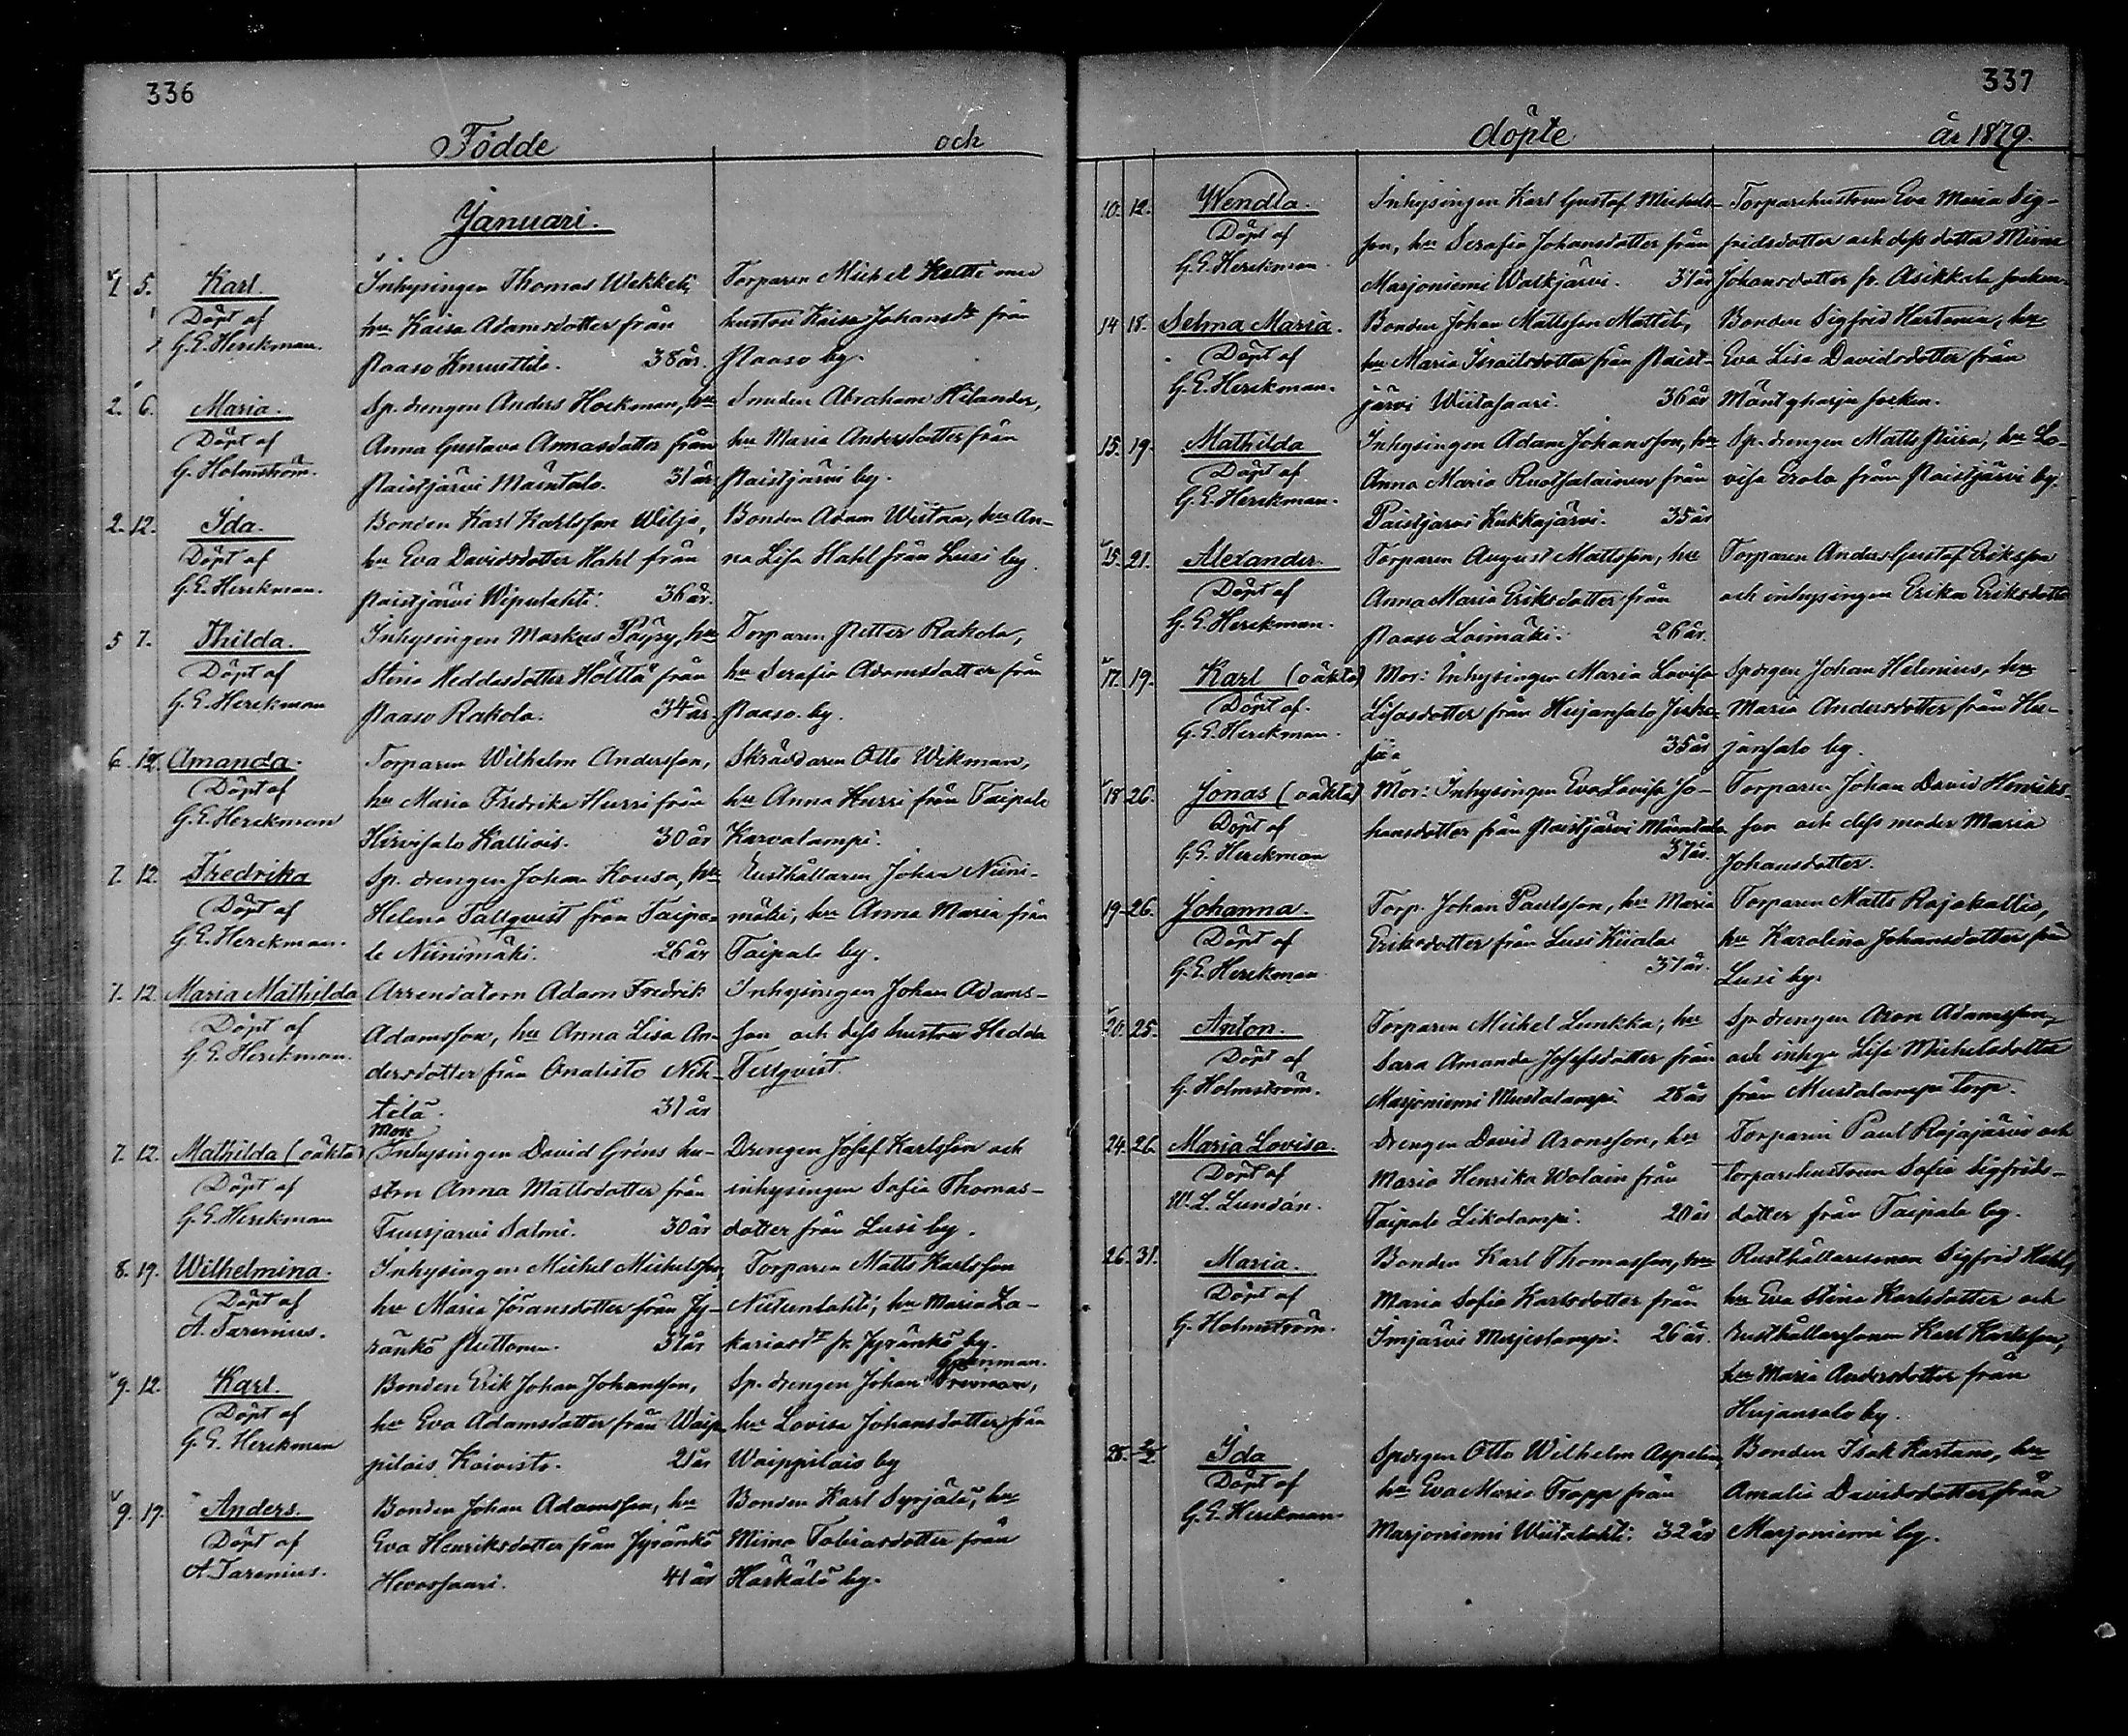 336
Födde och
Januari.
1. 5. Karl.
Döpt af
G. E. Herckman.
Inhysingen Thomas Wekkeli,
hu Kaisa Adamsdotter från
Paaso Knuuttila. 38 år.
Torparen Michel Kaltti med
hustru Kaisa Johansdr från
Paaso by.
2. 6. Maria.
Döpt af
G. Holmström.
Sp. drengen Anders Hockman, hu
Anna Gustava Annasdotter från
Paistjärvi Mäntalo. 31 år
Smeden Abraham Hilander,
hu Maria Andersdotter från
Paistjärvi by.
2. 12. Ida.
Döpt af
G. E. Herckman.
Bonden Karl Karlsson Wilja,
hu Eva Davidsdotter Hahl från
Paistjärvi Wipulahti. 36 år.
Bonden Adam Wiitaa, hu An-
na Lisa Hahl från Lusi by.
5 7. Thilda.
Döpt af
G. E. Herckman
Inhysingen Markus Päyry, hu
Stina Heddasdotter Hölttä från
Paaso Rakola. 34 år.
Torparen Petter Rakola,
hu Serafia Adamsdotter från
Paaso by.
6. 12. Amanda.
Döpt af
G. E. Herckman
Torparen Wilhelm Andersson,
hu Maria Fredrika Hurri från
Hirvisalo Kallinis. 30 år
Skräddaren Otto Wikman,
hu Anna Hurri från Taipale
Karvalampi.
7. 12. Fredrika
Döpt af
G. E. Herckman.
Sp. drengen Johan Kousa, hu
Helena Tallqvist från Taipa-
le Niinimäki. 26 år
Rusthållaren Johan Niini-
mäki, hu Anna Maria från
Taipale by.
7. 12. Maria Mathilda
Döpt af
G. E. Herckman.
Arrendatorn Adam Fredrik
Adamsson, hu Anna Lisa An-
dersdotter från Onalisto Nik-
tilä. 31 år
Inhysingen Johan Adams-
son och dess hustru Hedda
Tertqvist.
7. 12. Mathilda (oäkta)
Döpt af
G. E. Herckman
Mor:
Inhysingen David Gröns hu-
stru Anna Mattsdotter från
Tuusjärvi Salmi. 30 år
Drengen Josef Karlsson och
inhysingen Sofia Thomas-
dotter från Lusi by.
8. 19. Wilhelmina.
Döpt af
A. Farenius.
Inhysingen Michel Michelsson,
hu Maria Göransdotter från Jy-
ränkö Puttonen. 31 år
Torparen Matts Karlsson
Niitunlahti, hu Maria Za-
kariasdr fr. Jyränkö by.
9. 12. Karl.
Döpt af
G. E. Herckman
Bonden Erik Johan Johansson,
hu Eva Adamsdotter från Waip-
pilais Koivisto. 21 år
Grenman.
Sp. drengen Johan
hu Lovisa Johansdotter från
Waippilais by
9. 17. Anders.
Döpt af
A. Farenius.
Bonden Johan Adamsson, hu
Eva Henriksdotter från Jyränkö
Hevossaari. 41 år
Bonden Karl Syrjälä, hu
Miina Tobiasdotter från
Härkälä by.
337
döpte år 1879.
10. 12. Wendla.
Döpt af
G. E. Herckman.
Inhysingen Karl Gustaf Michels-
son, hu Serafia Johansdotter från
Marjoniemi Walkjärvi. 31 år
Torparehustrun Eva Maria Sig-
fridsdotter och dess dotter Miina
Johansdotter fr. Asikkala socken.
14 18. Selma Maria.
Döpt af
G. E. Herckman.
Bonden Johan Mattsson Mattila,
hu Maria Israelsdotter från Paist-
järvi Wiitasaari. 36 år
Bonden Sigfrid Hartonen, hu
Eva Lisa Davidsdotter från
Mäntyharju socken.
15. 19. Mathilda
Döpt af
G. E. Herckman.
Inhysingen Adam Johansson, hu
Anna Maria Ruotsalainen från
Paistjärvi Kukkajärvi. 35 år
Sp. drengen Matts Piira, hu Lo-
visa Erola från Paistjärvi by.
15. 21. Alexander.
Döpt af
G. E. Herckman.
Torparen August Mattsson, hu
Anna Maria Eriksdotter från
Paaso Loimäki. 26 år.
Torparen Anders Gustaf Eriksson
och inhysingen Erika Eriksdotter
17. 19. Karl (oäkta)
Döpt af
G. E. Herckman.
Mor: Inhysingen Maria Lovisa
Lisasdotter från Hujansalo
35 år
Spdrgen Johan Helenius, hu
Maria Andersdotter från Hu-
jansalo by.
18 26. Jonas (oäkta)
Döpt af
G. E. Herckman
Mor: Inhysingen Eva Lovisa Jo-
hansdotter från Paistjärvi Mäntalo
37 år.
Torparen Johan David Henriks-
son och dess moder Maria
Johansdotter.
19 26. Johanna.
Döpt af
G. E. Herckman
Torp. Johan Paulsson, hu Maria
Eriksdotter från Lusi Kiiala.
37 år.
Torparen Matts Rajakallio,
hu Karolina Johansdotter från
Lusi by.
20. 25. Anton.
Döpt af
G. Holmström.
Torparen Michel Lunkka, hu
Sara Amanda Josefsdotter från
Marjoniemi Mustalampi. 28 år
Sp. drengen Aron Adamsson,
och inhys Lisa Michelsdotter
från Mustalampi torp.
24. 26. Maria Lovisa.
Döpt af
W. L. Lundán.
Drengen David Aronsson, hu
Maria Henrika Wolain från
Taipale Likolampi. 20 år
Torparen Paul Rajajärvi och
torparehustrun Sofia Sigfrids-
dotter från Taipale by.
26. 31. Maria.
Döpt af
G. Holmström.
Bonden Karl Thomasson, hu
Maria Sofia Karlsdotter från
Imjärvi Marjeslampi. 26 år.
Rusthållaresonen Sigfrid Hahl,
hu Eva Stina Karlsdotter och
rusthållaresonen Karl Karlsson,
hu Maria Andersdotter från
Hujansalo by.
28. 2/2 Ida
Döpt af
G. E. Herckman.
Spdrgen Otto Wilhelm Aspelin,
hu Eva Maria Trapp från
Marjoniemi Wiitalahti. 32 år
Bonden Isak Kartano, hu
Amalia Davidsdotter från
Marjoniemi by.